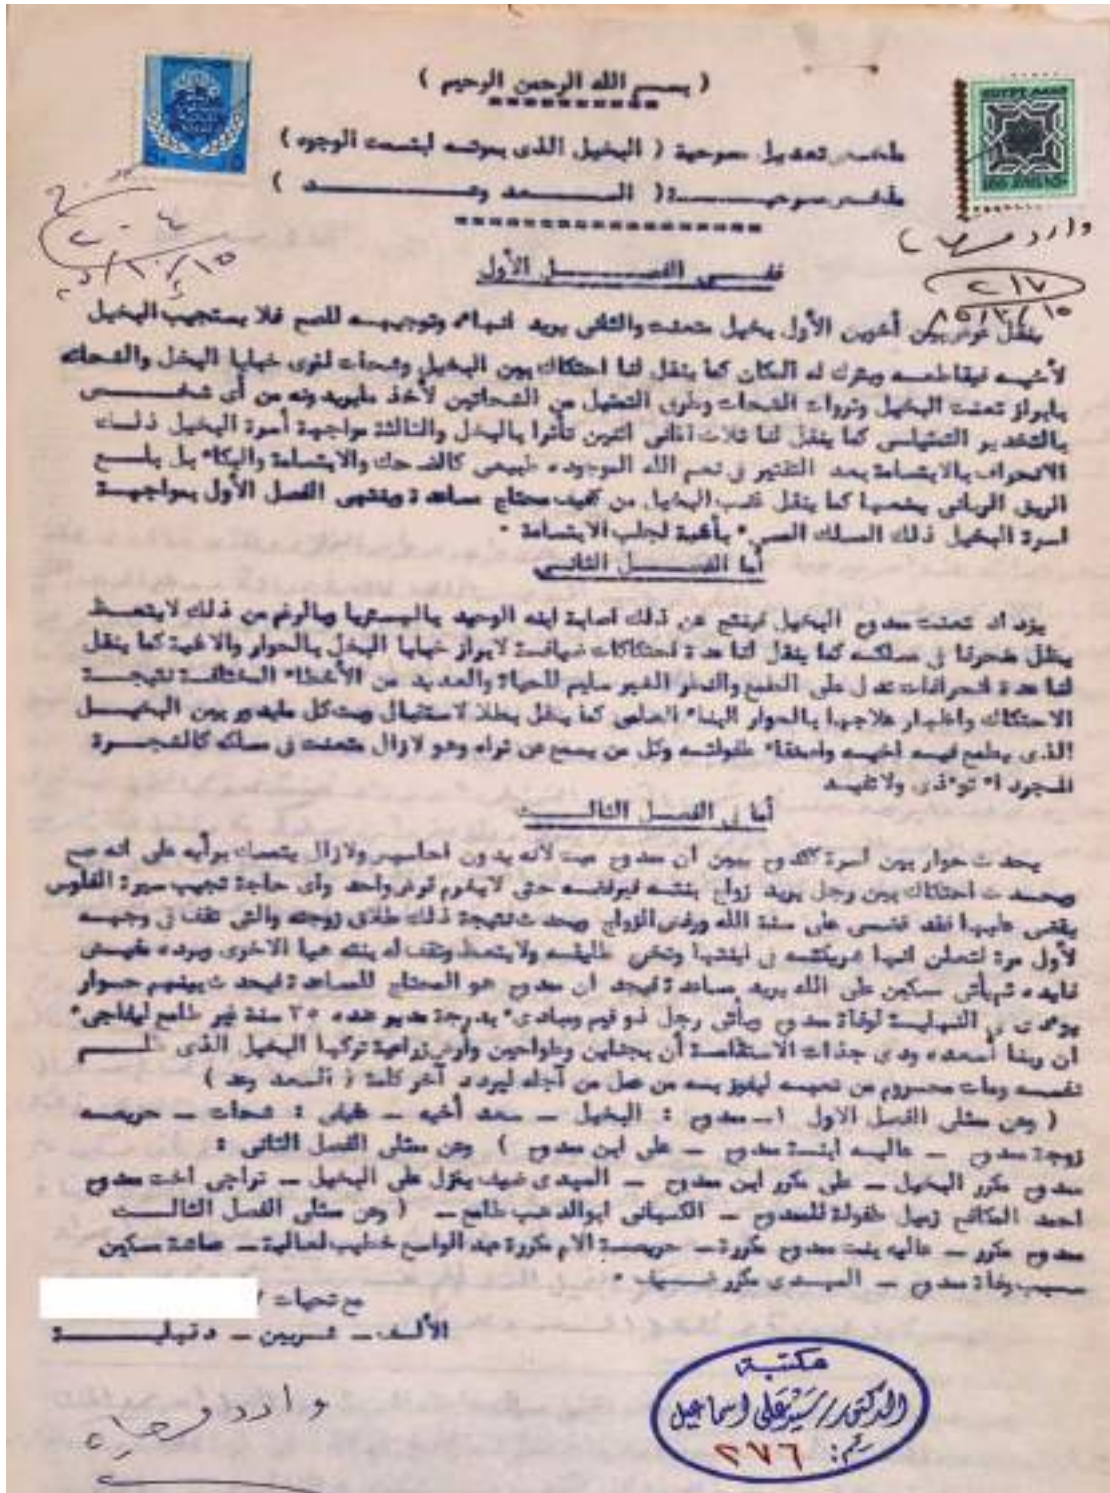 ( بسم الله الرحمن الرحيم )
ملخص تعديل مسرحية ( البخيل الذى بموته ابتسمت الوجوه )
ملخص مسرحية ( السعد وعد )
EGYPT
وارد
٢١٧
ففى الفصل الأول
ينقل عرض بين أخوين الأول بخيل متعنت والثانى يريد انهاء وتوجيهه للصح فلا يستجيب البخيل
لأخيه فيقاطعه ويترك له المكان كما ينقل لنا احتكاك بين البخيل وشحات لنرى خبايا البخل والشحاته
بابراز تعنت البخيل وثروات الشحات وطرق التمثيل من الشحاتين لأخذ مايريدونه من أى شخص
بالتخدير التمثيلى كما ينقل لنا ثلاث اغانى اثنين تأثرا بالبخل والثالثة مواجهة أسرة البخيل ذلك
الانحراف بالابتسامة بعد التقتير فى نعم الله الموجوده طبيعى كالضحك والابتسامة والبكاء بل بلع
الريق الربانى كما ينقل البخيل من محتاج مساعدة وينتهى الفصل الأول بمواجهة
اسرة البخيل ذلك المسلك السىء بأغنية لجلب الابتسامة .
أما الفصل الثانى
يزداد تعنت ممدوح البخيل فينتج عن ذلك اصابة ابنه الوحيد بالهستريا وبالرغم من ذلك لا يتعظ
يظل منحرفا فى مسلكه كما ينقل لنا عدة احتكاكات لابراز خبايا البخل بالحوار والاغنية كما ينقل
لنا عدة انحرافات تدل على الطمع والنظر الغير سليم للحياة والعديد من الأخطاء المختلفة نتيجة
الاحتكاك واظهار علاجها بالحوار البناء كما ينقل لاستقبال كل مايدور بين البخيل
الذى يطمع فيه اخيه واصدقاء طفولته وكل من يسمع عن ثراه وهو لازال متعنت فى مسلكه كالشجرة
الجرداء تؤذى ولا تفيد
أما فى الفصل الثالث
يحدث حوار بين اسرة ممدوح يبين أن ممدوح ميت لأنه بدون احاسيس ولازال يتمسك برأيه على انه صح
ويحدث احتكاك بين رجل يريد زواج بنته فيرفضه حتى لايغرم قرش واحد وأى حاجة تجيب سيرة الفلوس
يقضى عليها فقد قضى على سنة الله ورفض الزواج ويحدث نتيجة ذلك طلاق زوجته والتى تقف فى وجهه
لأول مرة لتعلن انها فى ابنتها وتخرج طليقه ولايتعظ وتقف له بنته هيا الاخرى وبرده مفيش
فايده ثم يأتى مسكين على الله يريد مساعدة فيجد ان ممدوح هو المحتاج للمساعدة فيحدث بينهم حوار
يؤدى فى النهاية لوفاة ممدوح ويأتى رجل ذو قيم ومبادىء بدرجة مدير عنده ٣٥ سنة غير طامع ليفاجىء
ان ربنا أسعده ودى جذات الاستقامة أن بجناين وطواحين وأرض زراعية تركها البخيل الذى ظلم
نفسه ومات محروم من نعيمه ليفوز بيه من عمل من أجله ليردد آخر كلمة ( السعد وعد )
( وعن ممثلى الفصل الاول ١ـ ممدوح : البخيل ـ سعد أخيه ـ : شحات ـ حريصه
زوجة ممدوح ـ عاليه ابنة ممدوح ـ على ابن ممدوح ) وعن ممثلى الفصل الثانى :
ممدوح مكرر البخيل ـ على مكرر ابن ممدوح ـ ضيف ينزل على البخيل ـ تراجى اخت ممدوح
احمد المكافح زميل طفولة للممدوح ـ طامع ـ ( وعن ممثلى الفصل الثالث
ممدوح مكرر ـ عاليه بنت ممدوح مكررة ـ حريصة الام مكررة عبد الواسع خطيب لعالية ـ مسكين
سبب وفاة ممدوح ـ مكرر ضيف .
مع تحيات /
ـ شربين ـ دقهلية
وارد
مكتبة
الدكتور/ سيد على اسماعيل
رقم: ٢٧٦